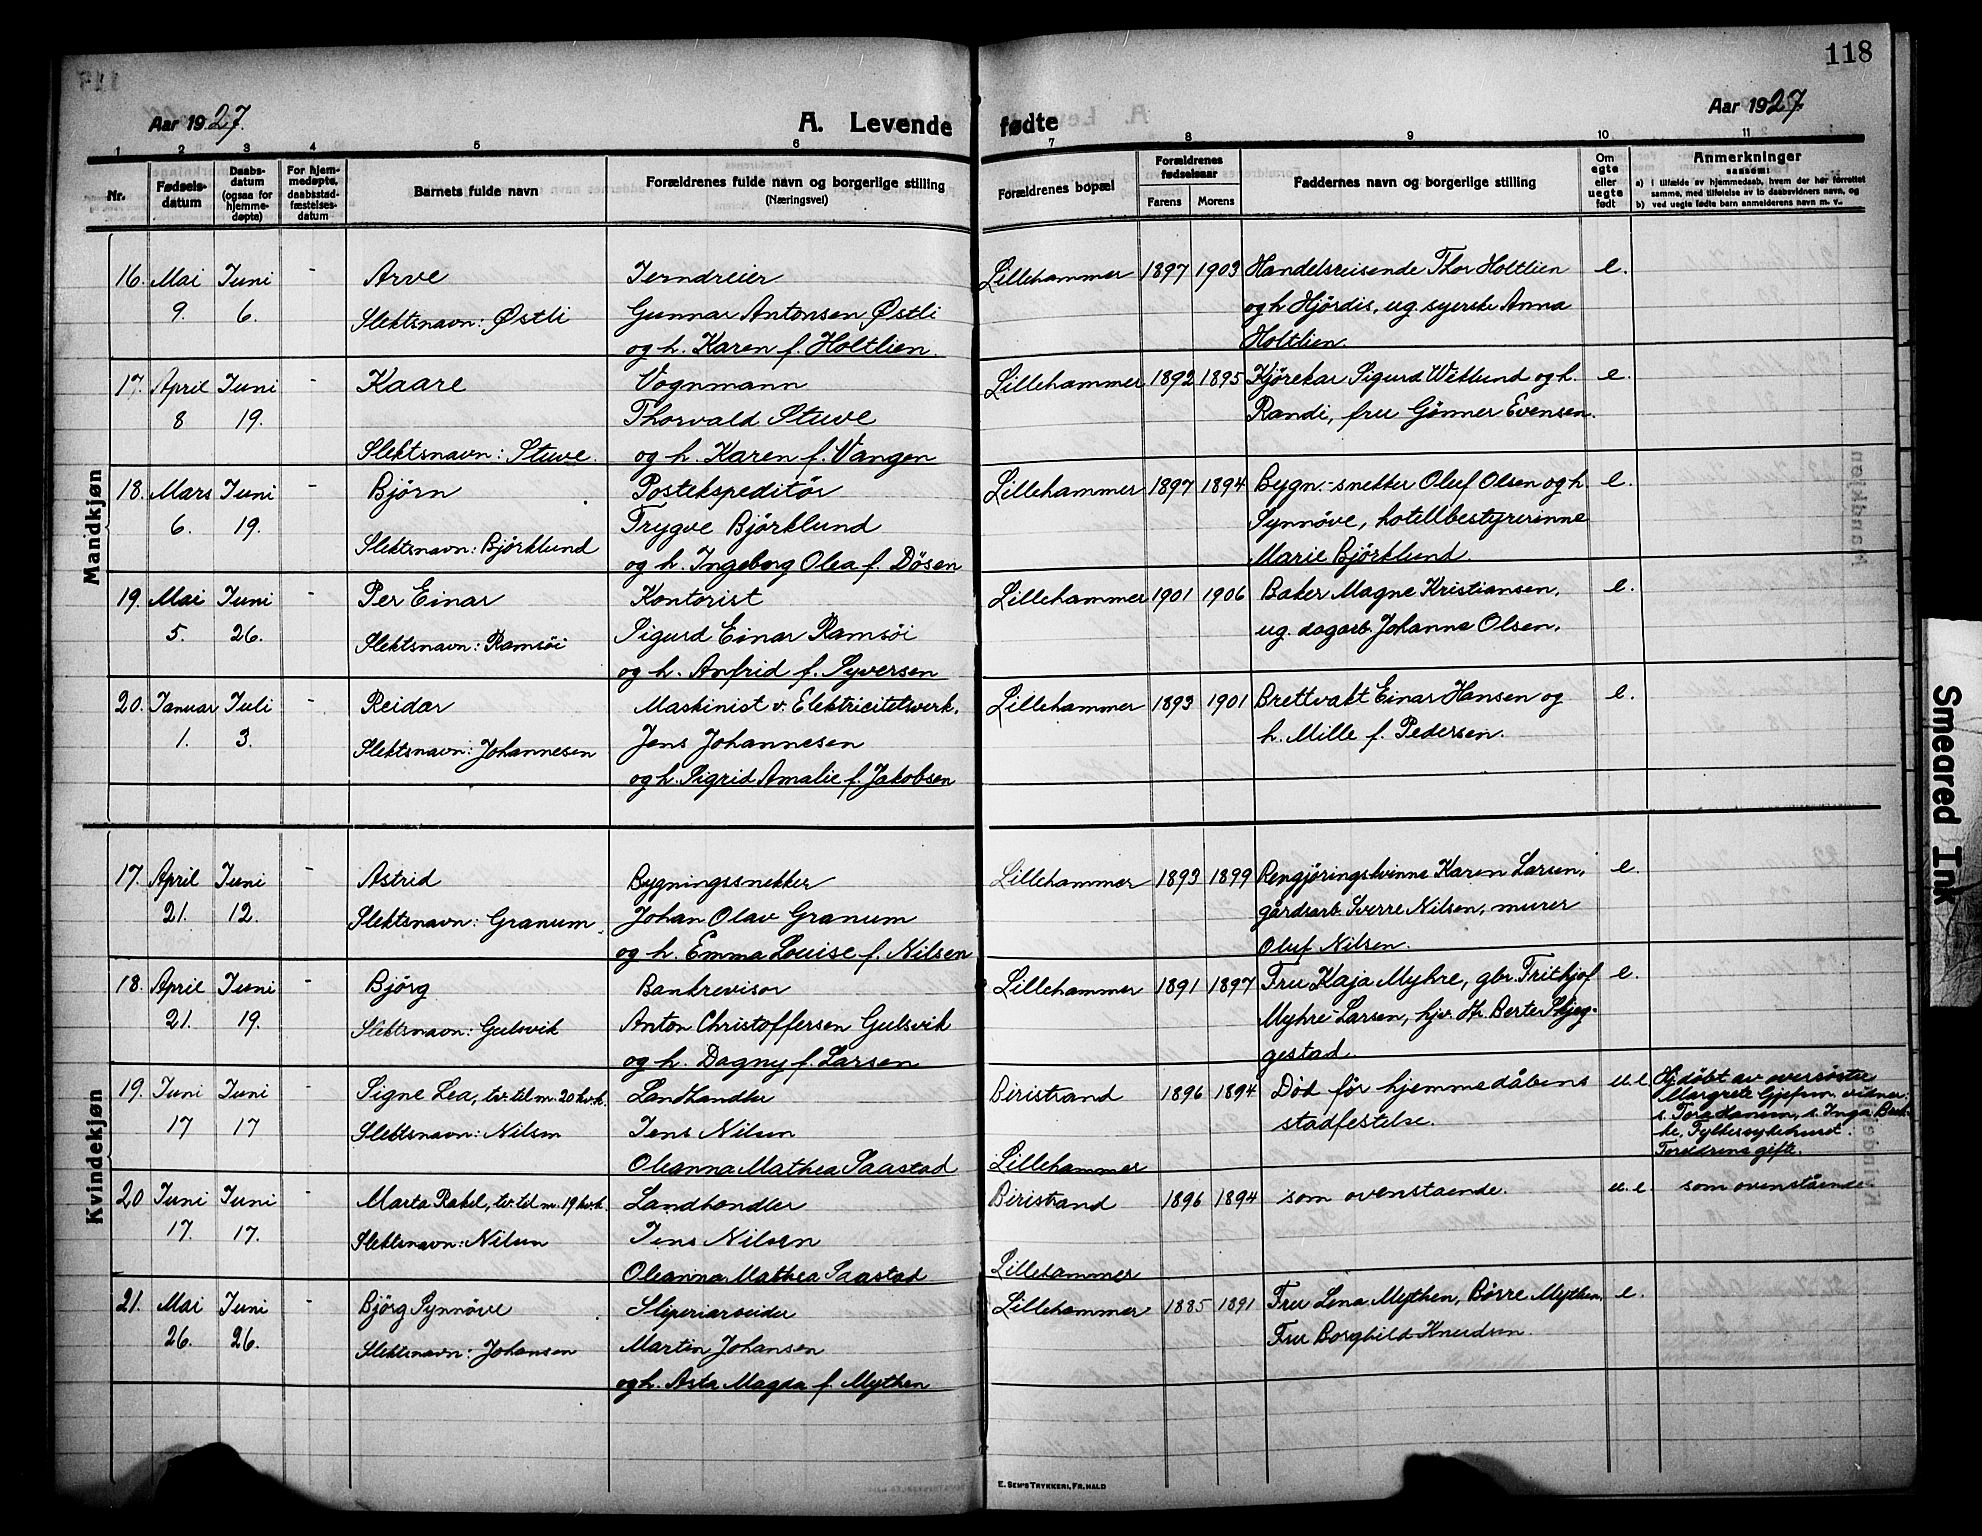 118
Aar 1927.
A. Levende fødte
Aar 1927
1 2 3 4 5 6 7 8 9 10 11
Nr.
Fødsels-
datum
Daabs-
datum
(ogsaa for
hjemme-
døpte)
For hjem-
medøpte,
daabsstad-
fæstelses-
datum
Barnets fulde navn
Forældrenes fulde navn og borgerlige stilling
(Næringsvei)
Forældrenes bopæl
Forældrenes
fødselsaar
Farens Morens
Faddernes navn og borgerlige stilling
Om
egte
eller
uegte
født
Anmerkninger
saasom:
a) i tilfælde av hjemmedaab, hvem der har forrettet
samme, med tilføielse av to daabsvidners navn, og
b) ved uegte fødte barn anmelderens navn m. v..
Mandkjøn
16. Mai Juni - Arve Jerndreier Lillehammer 1897 1903 Handelsreisende Thor Holtlien e.
9. 6. Slektsnavn: Østli Gunnar Antonsen Østli og h. Hjördis, ug. syerske Anna
og h. Karen f. Holtlien. Holtlien.
17. April Juni - Kaare Vognmann Lillehammer 1892 1895 Kjörekar Sigurd Wetlund og h. e.
8 19. Thorvald Stuve Randi, fru Gönner Evensen.
Slektsnavn: Stuve. og h. Karen f. Vangen
18. Mars Juni - Björn Postekspeditör Lillehammer 1897 1894 Bygn.-snekker Oluf Olsen og h e.
6. 19. Trygve Björklund Synnöve, hotellbestyrerinne
Slektsnavn: Björklund og h. Ingeborg Olea f. Dösen Marie Björklund.
19. Mai Juni - Per Einar Kontorist Lillehammer 1901 1906 Baker Magne Kristiansen, e.
5. 26. Slektsnavn: Ramsöi Sigurd Einar Ramsöi ug. dagarb. Johanna Olsen.
og h. Anfrid f. Syversen
20. Januar Juli - Reidar Maskinist v. Elektricitetsverk. Lillehammer 1893 1901 Brettvakt Einar Hansen og e.
1. 3. Slektsnavn: Johannesen Jens Johannesen h. Mille f. Pedersen.
og h. Sigrid Amalie f. Jakobsen
Kvindekjøn
17. April Juni - Astrid Bygningssnekker Lillehammer 1893 1899 Rengjöringskvinne Karen Larsen, e.
21. 12. Slektsnavn: Granum. Johan Olav Granum gårdsarb. Sverre Nilsen, murer
og h. Emma Louise f. Nilsen Oluf Nilsen.
18. April Juni - Björg Bankrevisor Lillehammer 1891 1897 Fru Kaja Myhre, gbr. Frithjof e.
21. 19. Slektsnavn: Gulsvik Anton Christoffersen Gulsvik Myhre-Larsen, hjv. Hr. Berte Skjeg-
og h. Dagny f. Larsen gestad.
19. Juni Juni - Signe Lea, tv. til m. 20 kv.k. Landhandler Biristrand 1896 1894 Död för hjemmedåbens u e Hj.döbt av oversöster
17 17 Slektsnavn: Nilsen Jens Nilsen stadfestelse. Margrete Gjefsen, vidner:
s. Tora Hanum, s. Inga Bak-
Oleanna Mathea Saastad Lillehammer ke, Fylkessykehuset.
Foreldrene gifte.
20 Juni Juni - Marta Rakel, tv. til m. 19 kv.k. Landhandler Biristrand 1896 1894 som ovenstaende. u. e. som ovenstående
17. 17. Slektsnavn: Nilsen Jens Nilsen
Oleanna Mathea Saastad Lillehammer
21. Mai Juni - Björg Synnöve Sliperiarbeider Lillehammer 1885 1891 Fru Lena Mythen, Börre Mythen, e.
26. 26. Slektsnavn: Johansen Martin Johansen Fru Borghild Knudsen.
og h. Asta Magda f. Mythen
E. SEM'S TRYKKERI, FR.HALD
Smeared Ink